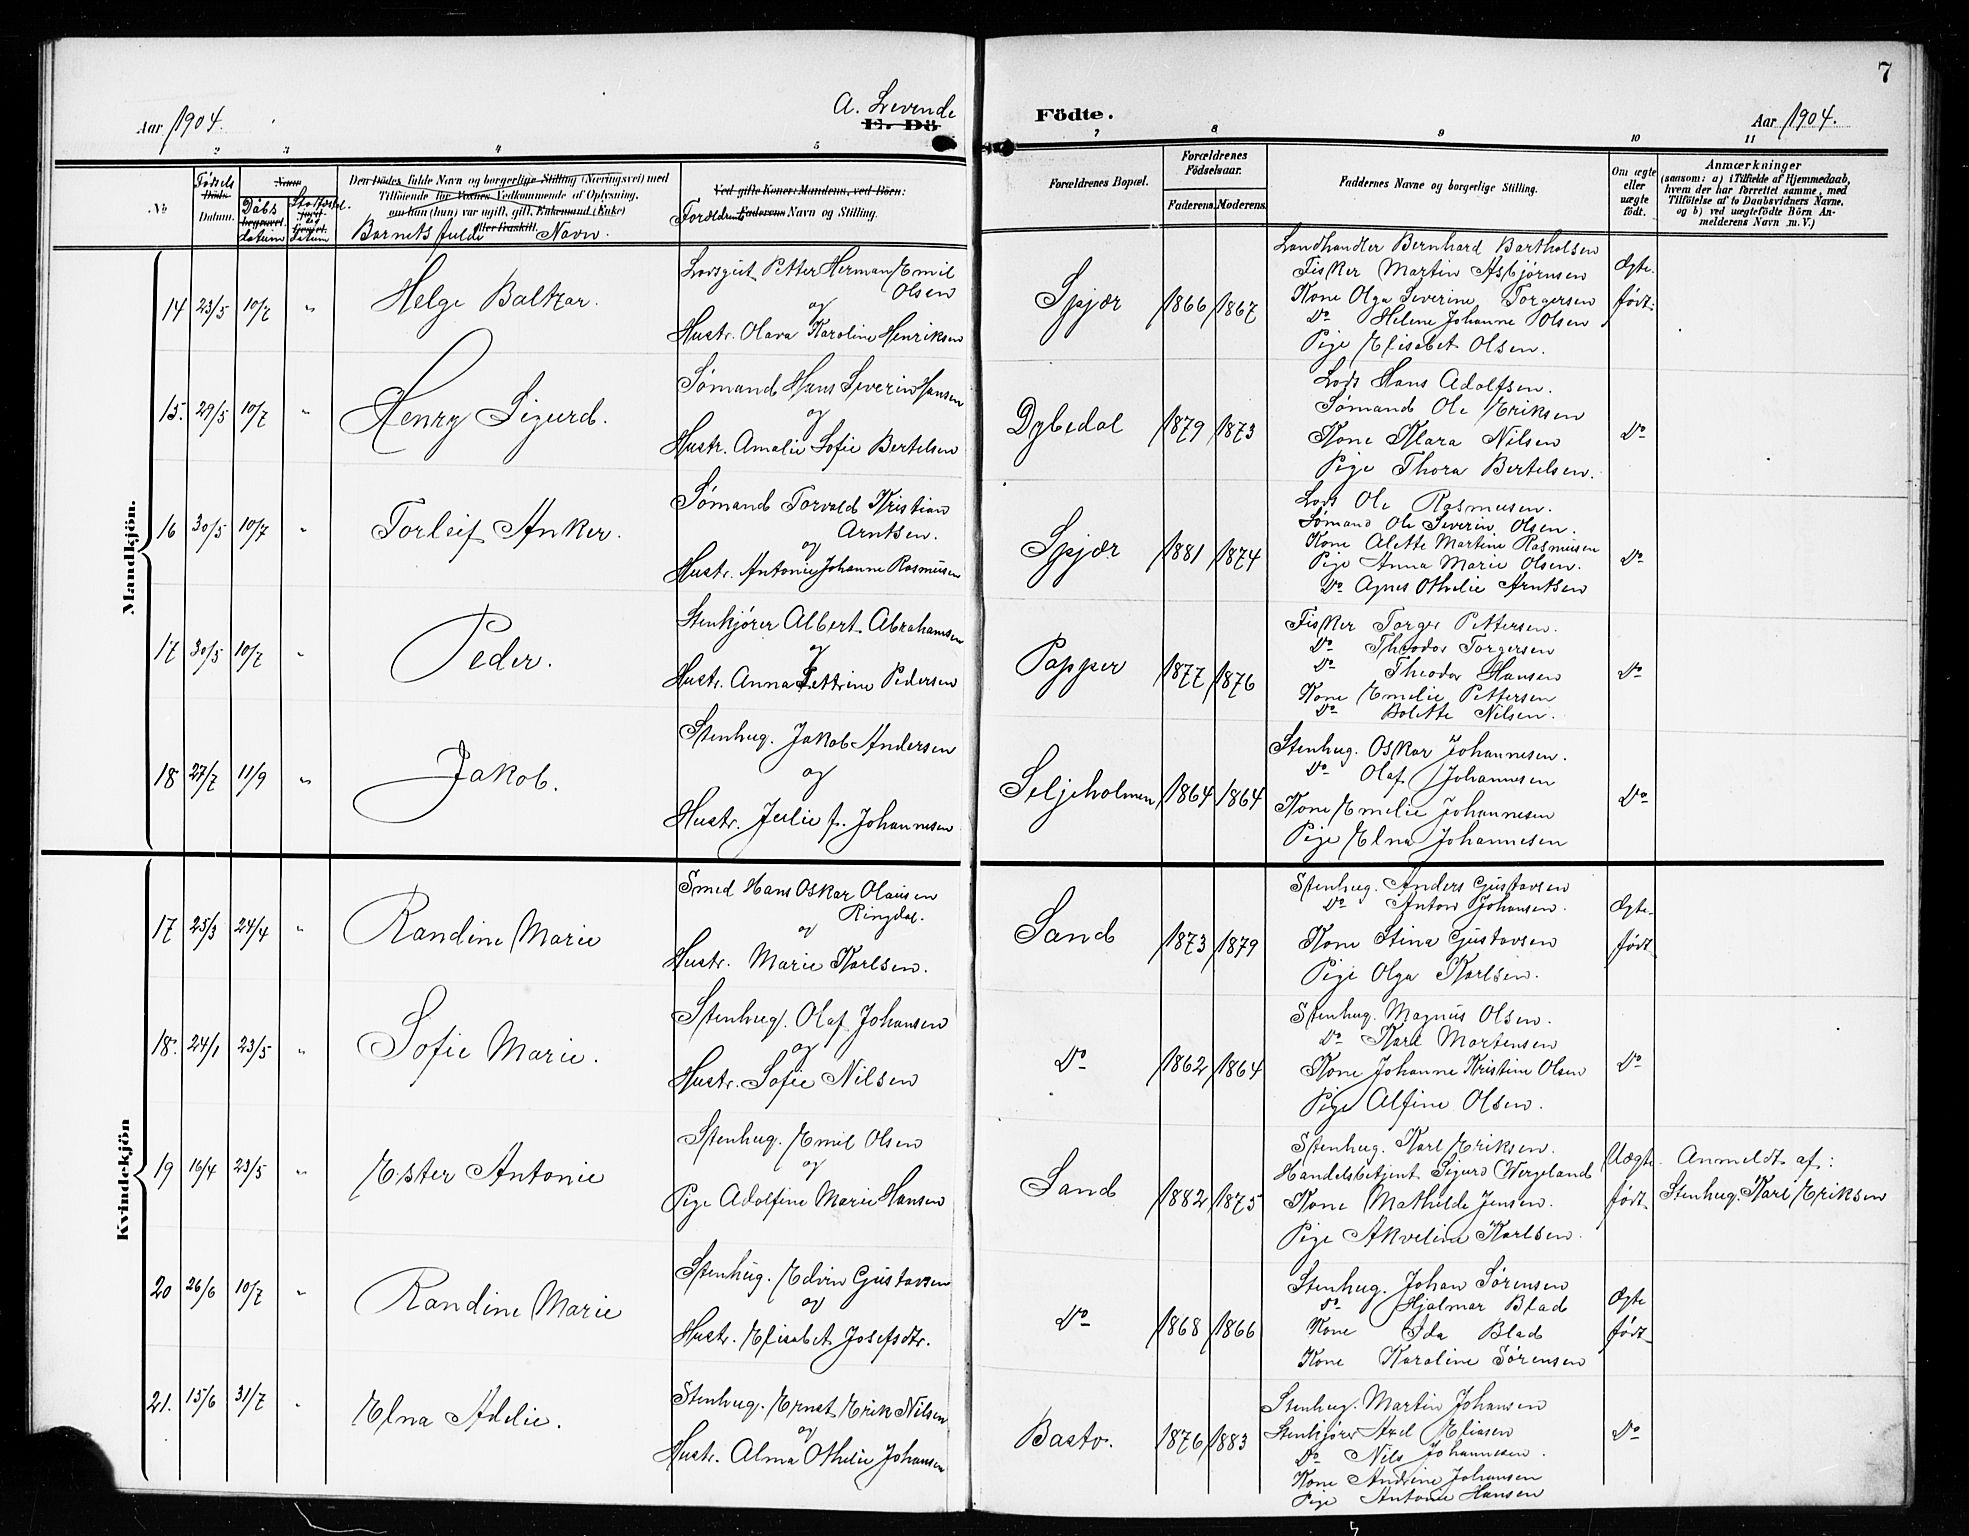 7
Aar 1904.
A. Levende
E. Dö
Födte.
Aar 1904.
2 3 4 5 7 8 9 10 11
No
Fødsels
Döds
Datum.
Navn
Döbs
begravet
datum
Stadfæst.
datum
Den Dödes fulde Navn og borgerlige Stilling (Næringsvei) med
Tilföiende for Voxnes Vedkommende af Oplysning,
om han (hun) var ugift, gift, Enkemand (Enke)
eller fraskilt.
Barnets fulde Navn.
Ved gifte Koner: Mandens, ved Börn:
Faderens Navn og Stilling.
Forældrenes
Forældrenes Bopæl.
Forældrenes
Födselsaar.
Faderens.
Moderens.
Faddernes Navne og borgerlige Stilling.
Om ægte
eller
uægte
födt.
Anmærkninger
(saasom: a) i Tilfælde af Hjemmedaab,
hvem der har forrettet samme, med
Tilföielse af to Daabsvidners Navne,
og b) ved uægtefödte Börn An-
melderens Navn m. V.)
Mandkjön.
14 23/5 10/7 "
Helge Baltzar.
Lodsgut Petter Herman Emil
Olsen
og
Hustr. Olava Karoline Henriksen
Spjær
1866 1867
Landhandler Bernhard Bartholsen
Fisker Martin Asbjørnsen
Kone Olga Severine Torgersen
Do Helene Johanne Olsen
Pige Elisabet Olsen.
Ægte-
født.
15. 29/5 10/7 "
Henry Sigurd.
Sømand Hans Severin Hansen
og
Hustr. Amalie Sofie Bertelsen
Dybedal
1879 1873
Lods Hans Adolfsen.
Sømand Ole Eriksen
Kone Klara Nilsen
Pige Thora Bertelsen.
Do
16 30/5 10/7 "
Torleif Anker.
Sømand Torvald Kristian
Arntsen.
og
Hustr. Antonie Johanne Rasmusen
Spjær
1881 1874
Lods Ole Rasmusen.
Sømand Ole Severin Olsen.
Kone Alette Martine Rasmusen
Pige Anna Marie Olsen.
Do Agnes Othilie Arntsen
Do
17 30/5 10/7 "
Peder.
Stenkjører Albert Abrahamsen
og
Hustr. Anna Pettrine Pedersen
Papper
1877 1876
Fisker Torger Pettersen.
Do Theodor Torgersen
Do Theodor Hansen
Kone Emelie Pettersen
Do Bolette Nilsen.
Do
18 27/7 11/9 "
Jakob.
Stenhug. Jakob Andersen
og
Hustr. Julie f. Johannesen
Seljeholmen
1864 1864
Stenhug. Oskar Johannesen.
Do Olaf Johannesen
Kone Emelie Johannesen
Pige Elna Johannesen
Do
Kvindekjön
17 25/3 24/4 "
Randine Marie
Smed Hans Oskar Olausen
Ringdal.
og
Hustr. Marie Karlsen.
Sand
1873 1879
Stenhug. Anders Gustavsen
Do Anton Johansen.
Kone Stina Gustavsen
Pige Olga Karlsen.
Ægte-
født
18. 24/1 23/5 "
Sofie Marie.
Stenhug. Olaf Johansen
og
Hustr. Sofie Nilsen
Do
1862 1864
Stenhug. Magnus Olsen.
Do Karl Mortensen
Kone Johanne Kristine Olsen
Pige Alfine Olsen.
Do
19 16/4 23/5 "
Ester Antonie
Stenhug. Emil Olsen
og
Pige Adolfine Marie Hansen
Sand
1882 1875
Stenhug. Karl Eriksen.
Handelsbetjent Sigurd Wergeland
Kone Mathilde Jensen.
Pige Akveline Karlsen.
Uægte
født.
Anmeldt af:
Stenhug. Karl Eriksen
20 26/6 10/7 "
Randine Marie
Stenhug. Edvin Gustavsen
og
Hustr. Elisabet Josefsdtr.
Do
1868 1866
Stenhug. Johan Sørensen
Do Hjalmar Blad
Kone Ida Blad
Kone Karoline Sørensen
Ægte
født
21. 15/6 31/7 "
Elna Adelie.
Stenhug. Ernst Erik Nilsen
og
Hustr. Alma Othilie Johansen
Bastø.
1876 1883
Stenhug. Martin Johansen
Stenkjører Axel Eliasen
Do Nils Johannesen.
Kone Andrine Johansen
Pige Antonie Hansen
Do